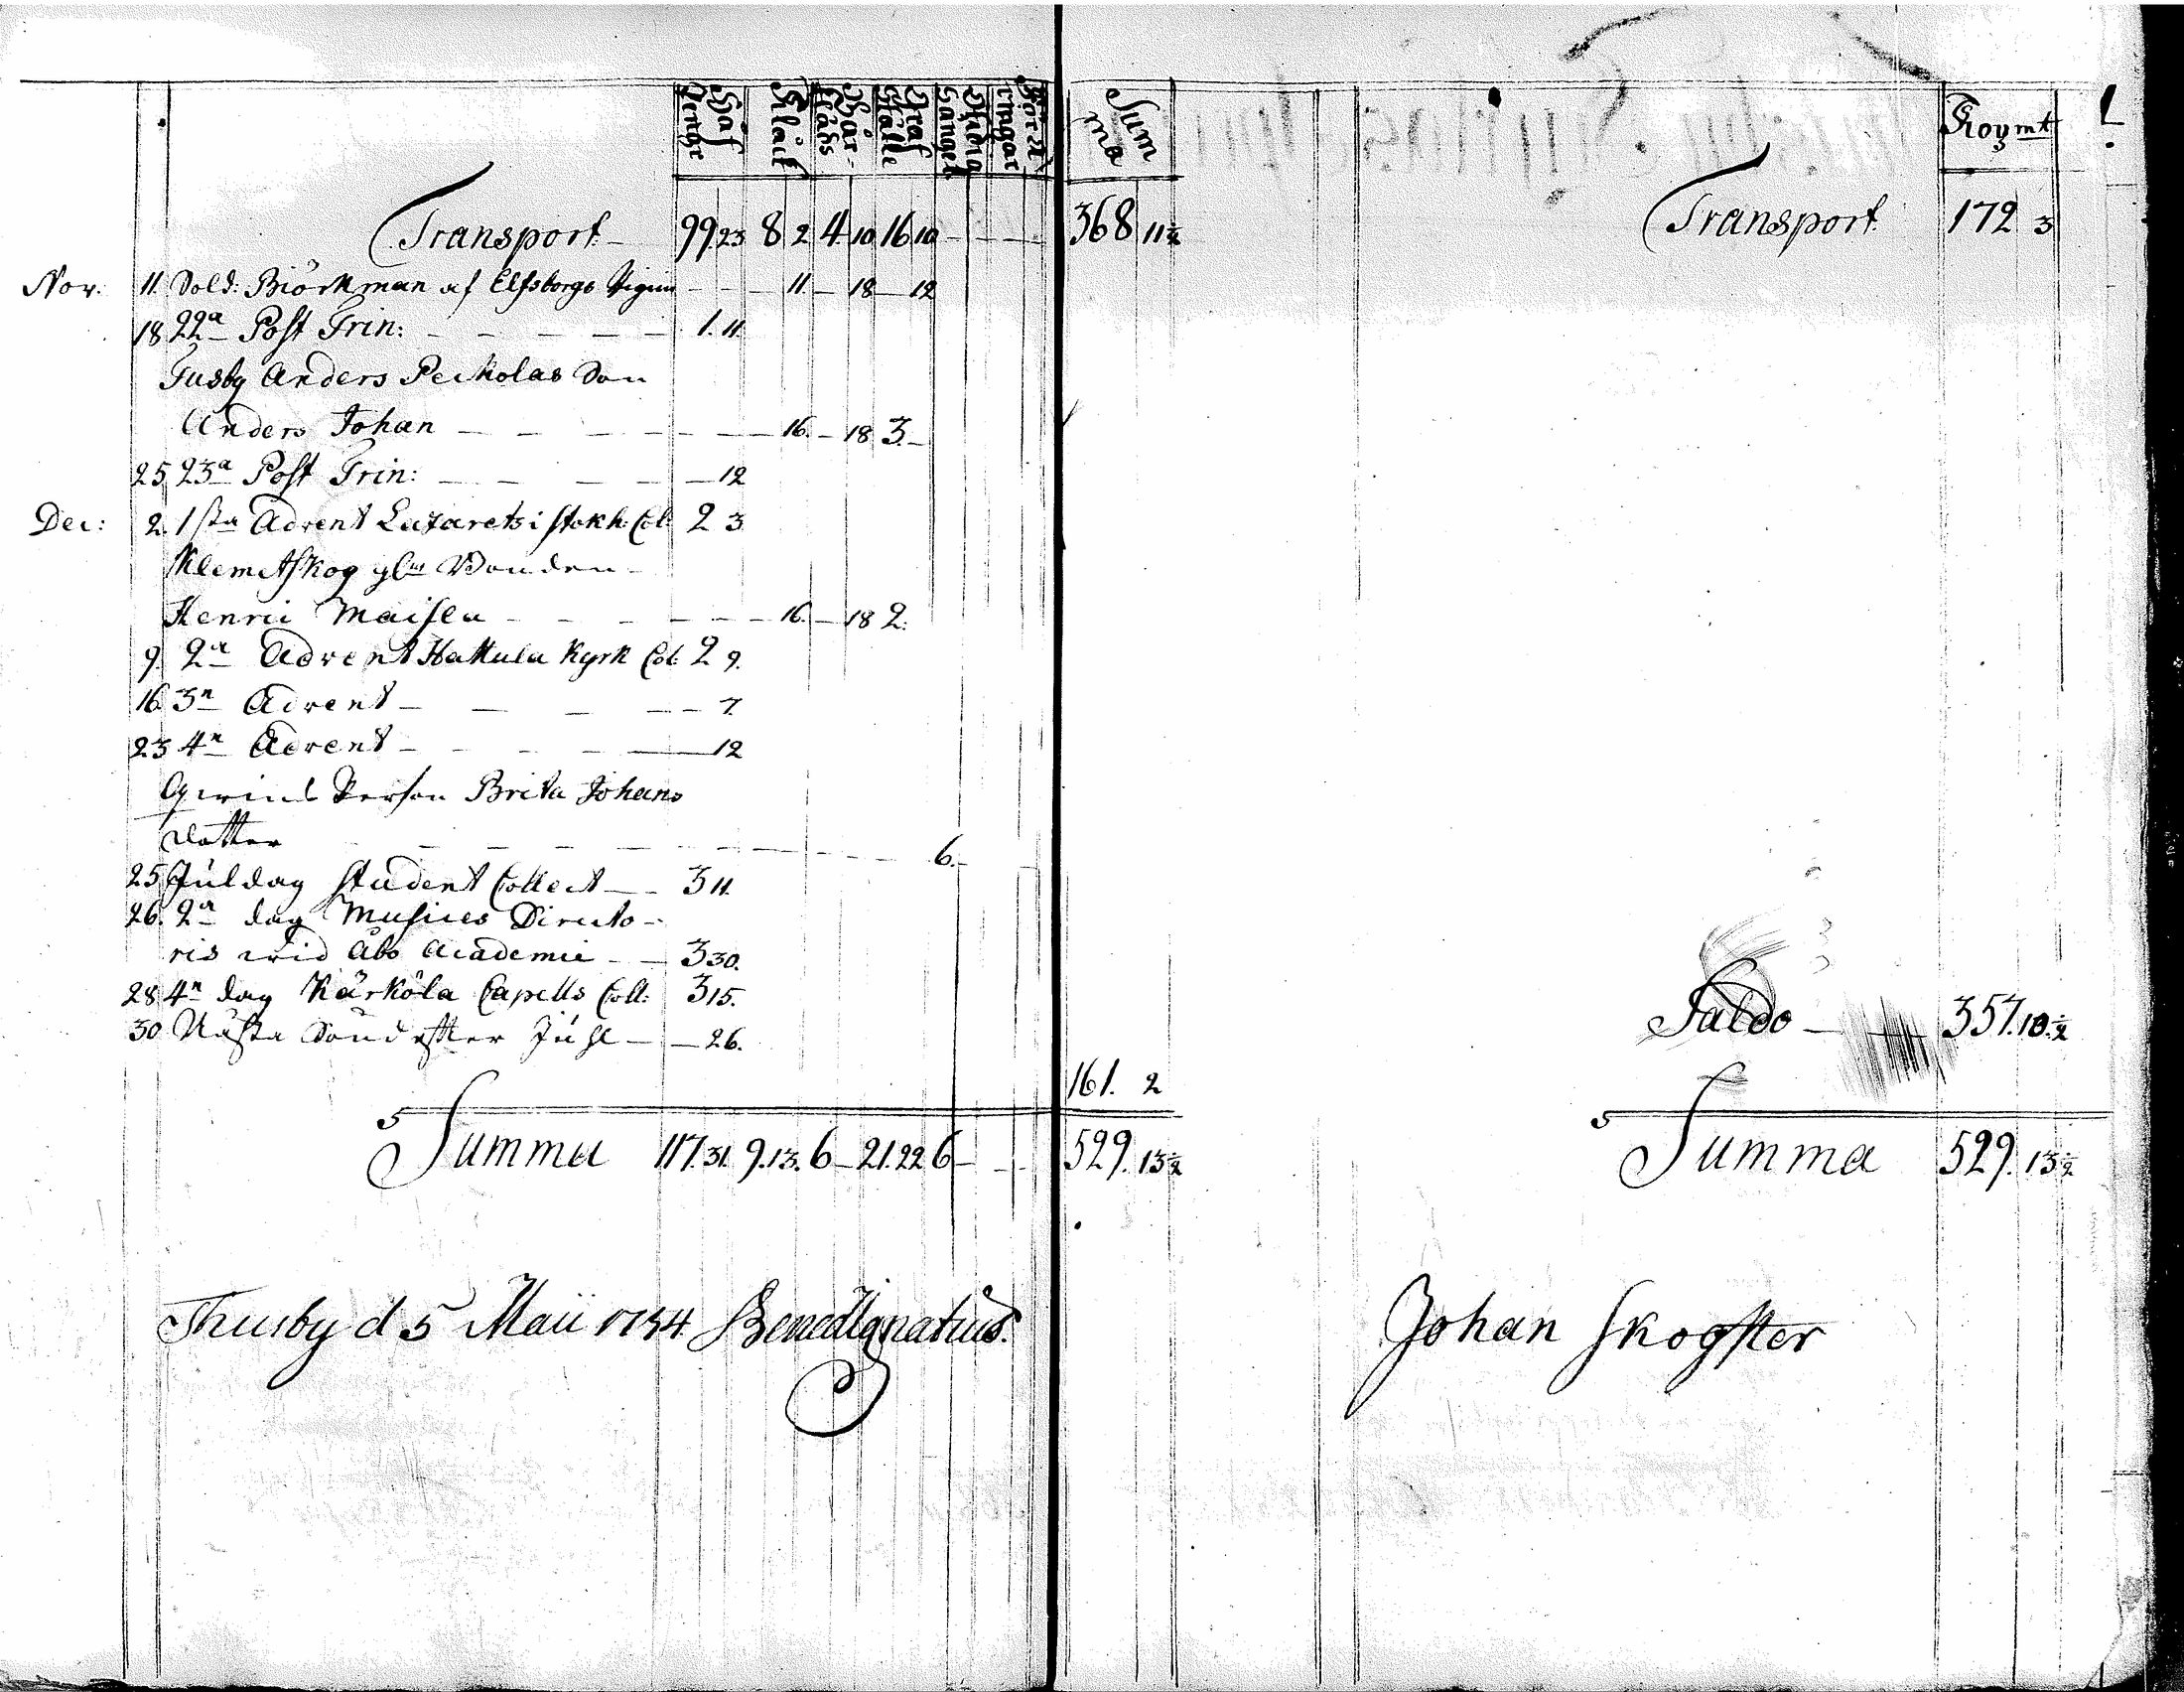 Håf Penge Klåck Bår-kläds Graf Ställe Sum ma Koymt
Transport 99 23 8 2 4 10 16 10 368 11½ Transport 172 3
Nov: 11. Sold: Biörkman af Elfsborgs 11. 18 12
18 22a Post Trin: 1. 11.
Tusby Anders Peckolas Son
Anders Johan 16. 18 3.
25 23a Post Trin: 12
Dec: 2. 1sta Advent Lazarets i Stokh: Col: 2 3
Klemetskog
Henric Maisla 16. 18 2.
9. 2a Advent Hattula Kyrk Col: 2 9.
16 3a Advent 7.
23 4a Advent 12
Brita Johans
dotter 6.
25 Juldag Student Collect 3 11.
26. 2a dag Musices Directo-
ris wid Åbo Academie 3 30.
28 4a dag Kärköla Capells Coll: 3 15.
30 Nästa Sönd: efter Juhl 26.
Saldo 357. 10.½
161. 2
Summa 117. 31. 9. 13. 6 21. 22 6 529. 13½ Summa 529. 13½
Thusby d 5 Maii 1754. Bened Ignatius. Johan Skogster